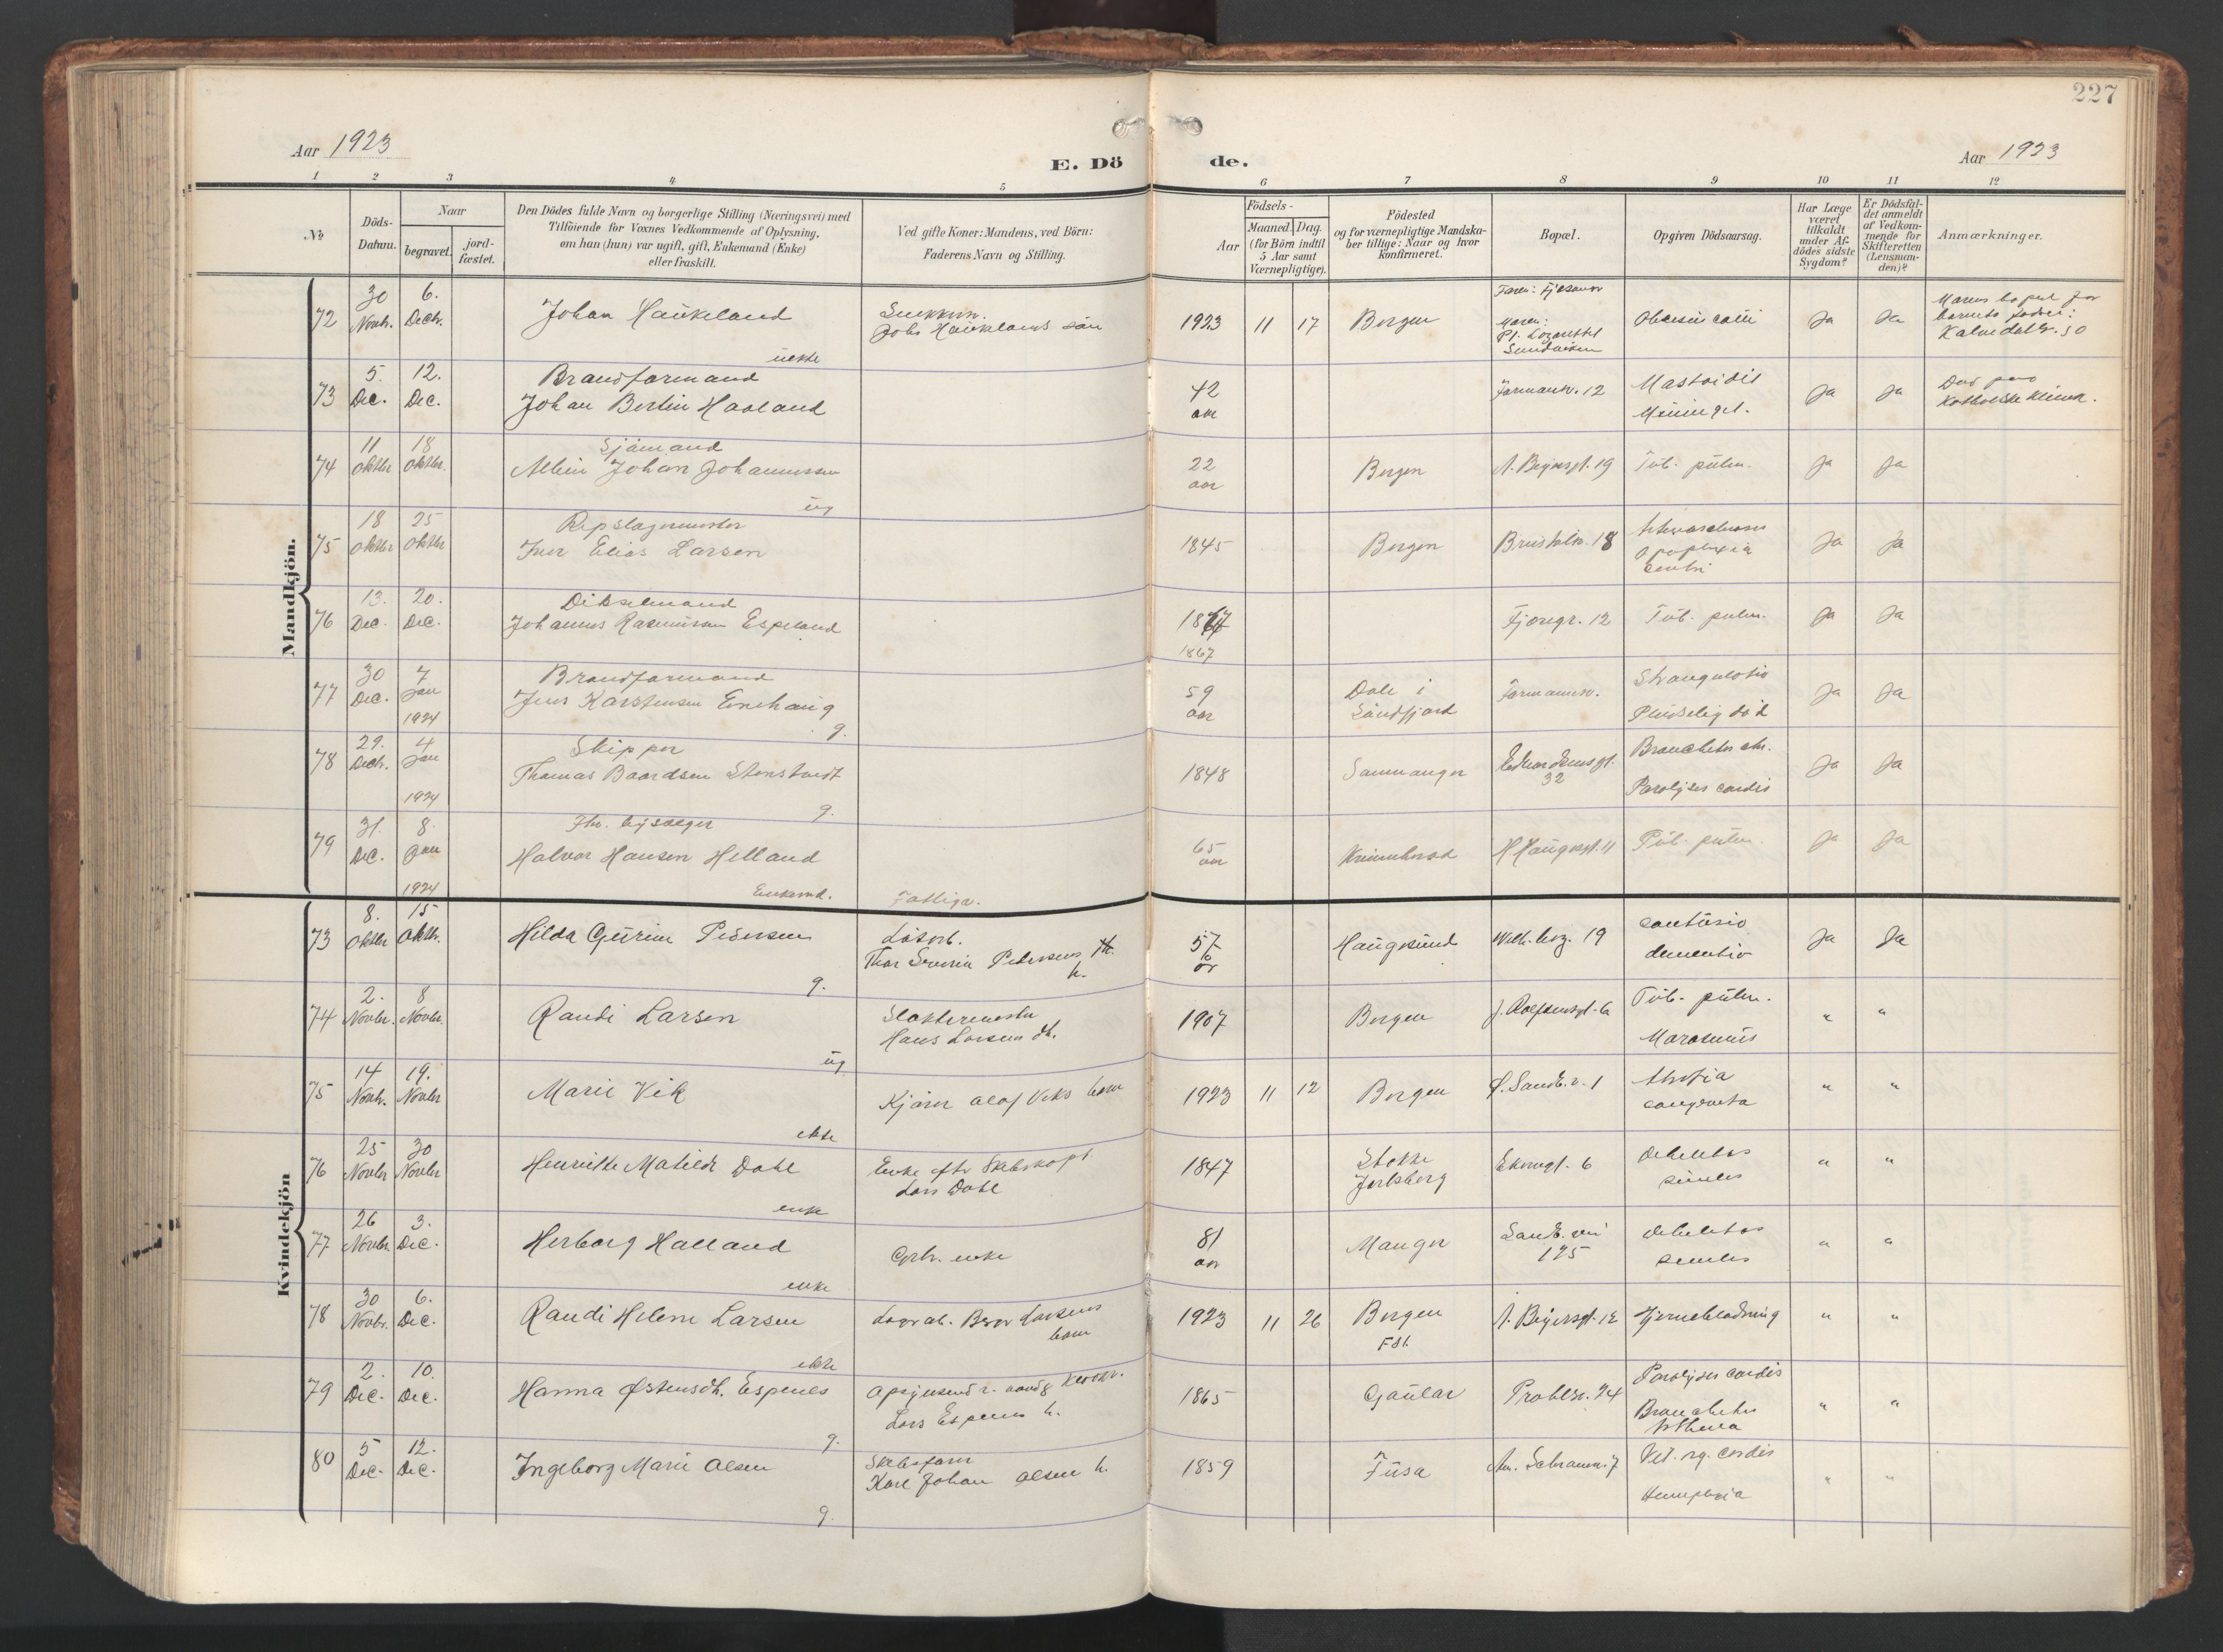 227
Aar 1923
E. Dö de.
Aar 1923
1 2 3 4 5 6 7 8 9 10 11 12
No
Döds-
Datum.
Naar
begravet.
jord-
fæstet.
Den Dödes fulde Navn og borgerlige Stilling (Næringsvei) med
Tilföiende for Voxnes Vedkommende af Oplysning,
om han (hun) var ugift, gift, Enkemand (Enke)
eller fraskilt.
Ved gifte Koner: Mandens, ved Börn:
Faderens Navn og Stilling.
Födsels-
Aar
Maaned. Dag.
(for Börn indtil
5 Aar samt
Værnepligtige).
Födested
og for værnepligtige Mandska-
ber tillige: Naar og hvor
konfirmeret.
Bopæl.
Opgiven Dödsaarsag.
Har Læge
været
tilkaldt
under Af-
dödes sidste
Sygdom?
Er Dödsfal-
det anmeldt
af Vedkom-
mende for
Skifteretten
(Lensman-
den)?
Anmærkninger.
Mandkjön.
72
30 Novbr.
6. Decbr.
Johan Haukeland
uekte
Johs Hauklands sön
1923 11 17
Bergen
Faren: Fjøsanger
Moren:
Sandviken
Ja Ja
Morens bopæl for
barnets födsel:
Kalvedalsv. 30
73
5. Dec.
12. Dec.
Brandformand
Johan Bertin Haaland
42
aar
Formannsv. 12
Mastoidit
Meningit.
Ja Ja
Död paa
Katholske klinik.
74
11 Oktbr
18 Oktbr.
Sjømand
Albin Johan Johannessen
ug
22
aar
Bergen
A. Beyersgt. 19
Tub. pulm.
Ja Ja
75
18 Oktbr
25 Oktbr
Repslagermester
Iver Elias Larsen
1845
Bergen
18
Apoplexia
Ja Ja
76
13. Dec.
20. Dec.
Johannes Rasmussen Espeland
1867
1867
Fjøregr. 12
Tub. pulm.
Ja Ja
77
30 Dec.
7 Jan
1924
Brandformand
Jens Karstensen Enehaug
g.
59
aar
Dale i
Söndfjord
Formannsv.
Strangulatio
Pludselig död
Ja Ja
78
29. Decbr.
4 Jan
1924
Skipper
Thomas Baardsen Stenstvedt
g.
1848
Samnanger
Edvardsensgt.
32
Bronchitis chr.
Paralyses cordis
Ja Ja
79
31. Dec.
8. Jan
1924
Halvor Hansen Helland
Enkemd.
Fattiga.
65
aar
Kvinnherad
H Haugesgt. 11
Tub. pulm.
Ja Ja
Kvindekjön
73
8. Oktbr
15 Oktbr.
Hilda Gurine Pedersen
g.
Løsarb.
Thor Severin Pedersens
h.
57
år
Haugesund
19
contusio
dementia
Ja Ja
74
2. Novbr.
8 Novbr.
Randi Larsen
ug
Slaktermester
Hans Larsens dt.
1907
Bergen
J. Rolfsensgt. 6a
Tub. pulm.
Marasmus
" "
75
14 Novbr.
19. Novbr
Marie Vik
ekte
Olaf Viks barn
1923 11 12
Bergen
Ø. Sandv. v. 1
Atrofia
congenita
" "
76
25 Novbr
30 Novbr
Henriette Matilde Dahl
enke
Enke eftr Skibskapt.
Lars Dahl
1847
Stokke
Jarlsberg
Ekrengt. 6
Debilitas
senilis
" "
77
26 Novbr.
3. Dec.
Herborg Halland
enke
Grbr. enke
81
aar
Manger
Sandv. vei
125
Debilitas
senilis
" "
78
30 Novbr.
6. Dec.
Randi Helene Larsen
ekte
Larsens
barn
1923 11 26
Bergen
FSt.
A. Beyersgt. 12
Hjerneblödning
" "
79
2. Dec.
10. Dec.
Hanna Østensdt. Espenes
g.
Lars Espenes h.
1865
Gaular
Prahlsv. 24
Paralyses cordis
Bronchitis
Asthma
" "
80
5 Dec.
12. Dec.
Ingeborg Marie Olsen
g.
Skibsförer
Karl Johan Olsens h.
1859
Fusa
Vit. org. cordis
Hemiplexia
" "